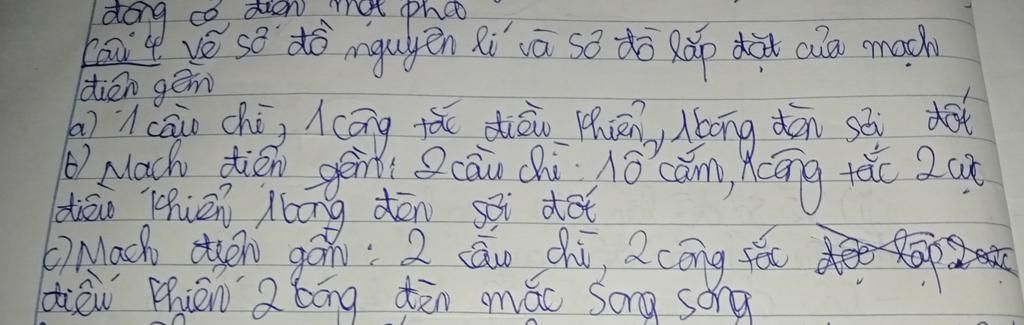 động cơ điện một pha
Câu 4 vẽ sơ đồ nguyên lí và sơ đồ lắp đặt của mạch
điện gồm
a) 1 cầu chì, 1 công tắc điều khiển, 1 bóng đèn sợi đốt
b) Mạch điện gồm: 2 cầu chì: 1 ổ cắm, 1 công tắc 2 cực
điều khiển 1 bóng đèn sợi đốt
c) Mạch điện gồm: 2 cầu chì, 2 công tắc
điều khiển 2 bóng đèn mắc song song